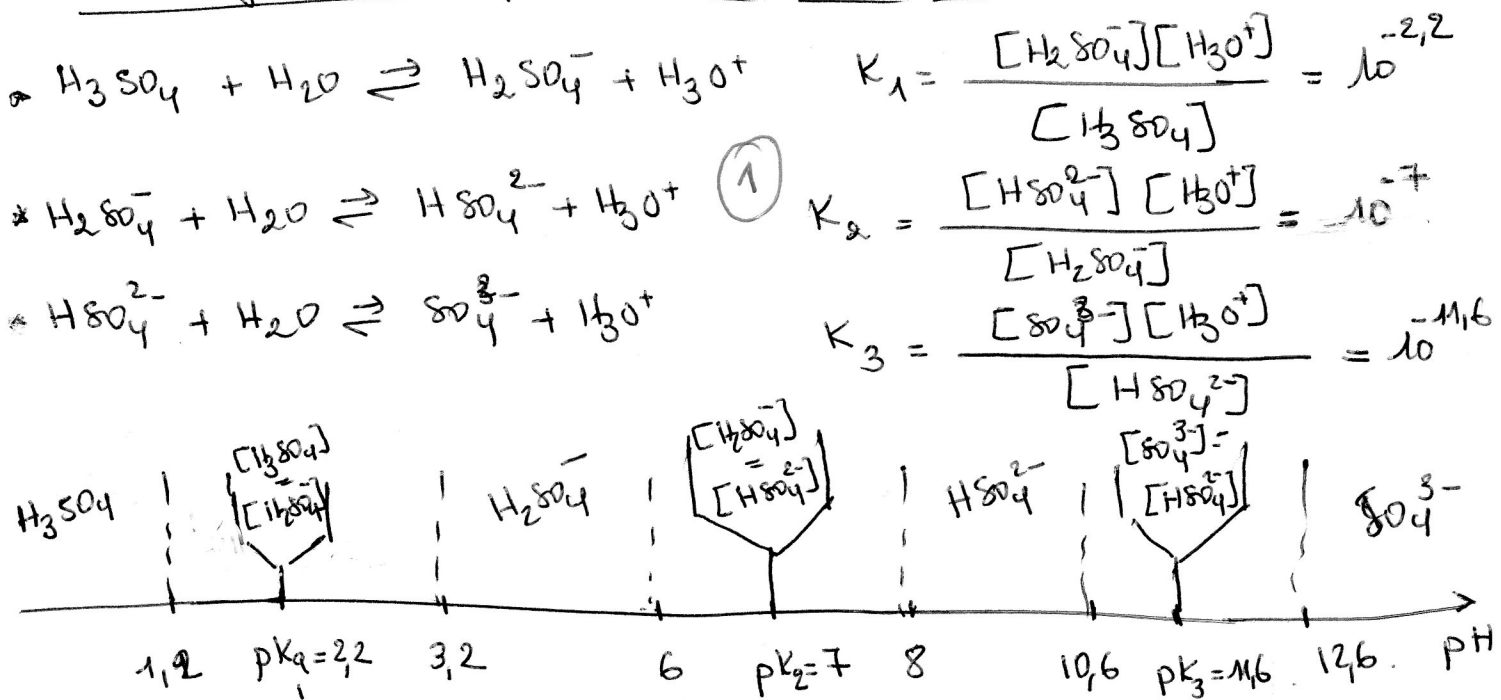 • H₃SO₄ + H₂O ⇌ H₂SO₄⁻ + H₃O⁺ K₁ = [H₂SO₄⁻][H₃O⁺] / [H₃SO₄] = 10^-2,2
* H₂SO₄⁻ + H₂O ⇌ HSO₄²⁻ + H₃O⁺ ① K₂ = [HSO₄²⁻][H₃O⁺] / [H₂SO₄⁻] = 10^-7
* HSO₄²⁻ + H₂O ⇌ SO₄³⁻ + H₃O⁺ K₃ = [SO₄³⁻][H₃O⁺] / [HSO₄²⁻] = 10^-11,6
H₃SO₄ [H₃SO₄] = [H₂SO₄⁻] H₂SO₄⁻ [H₂SO₄⁻] = [HSO₄²⁻] HSO₄²⁻ [SO₄³⁻] = [HSO₄²⁻] SO₄³⁻
1,2 pKa₁=2,2 3,2 6 pK₂=7 8 10,6 pK₃=11,6 12,6. pH